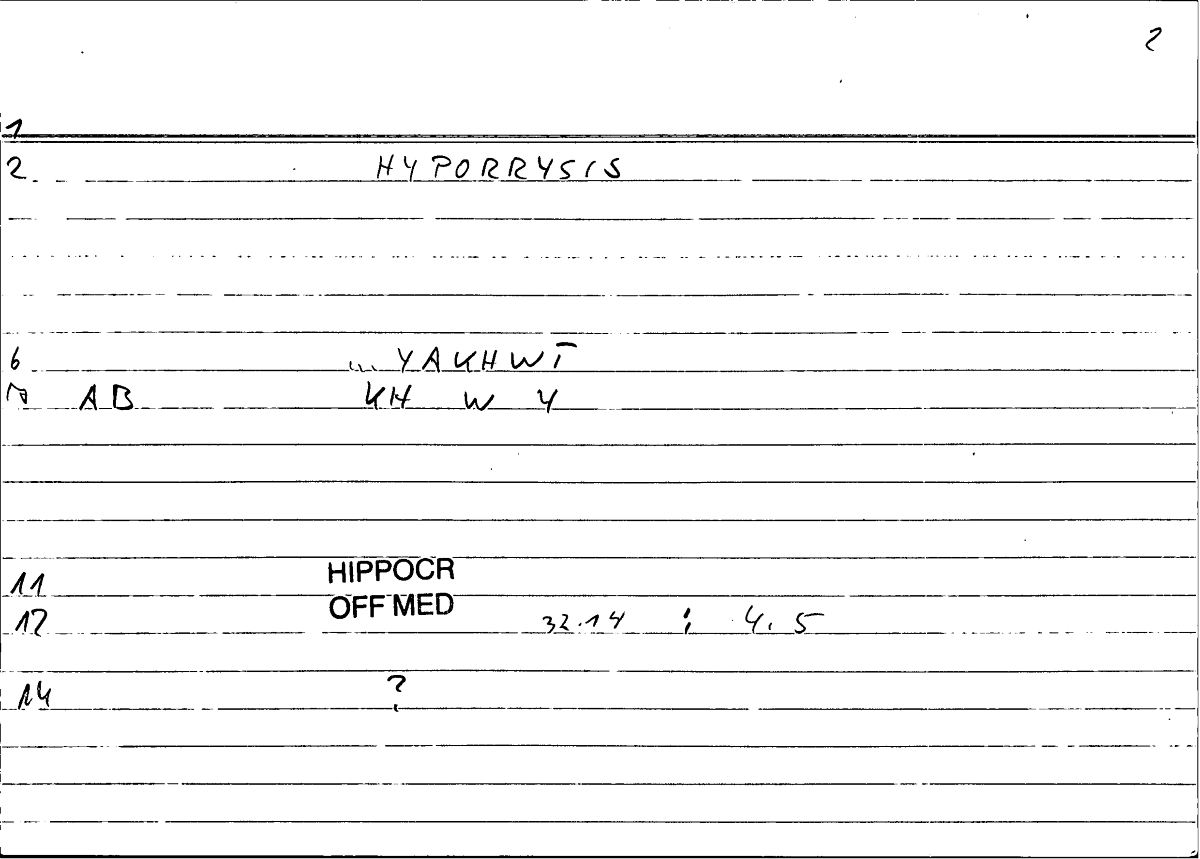 2
1
2 HYPORRYSIS
6 ... YAKHWT
7 AB KH W Y
11 HIPPOCR
12 OFF MED 32.14 ; 4.5
14 ?